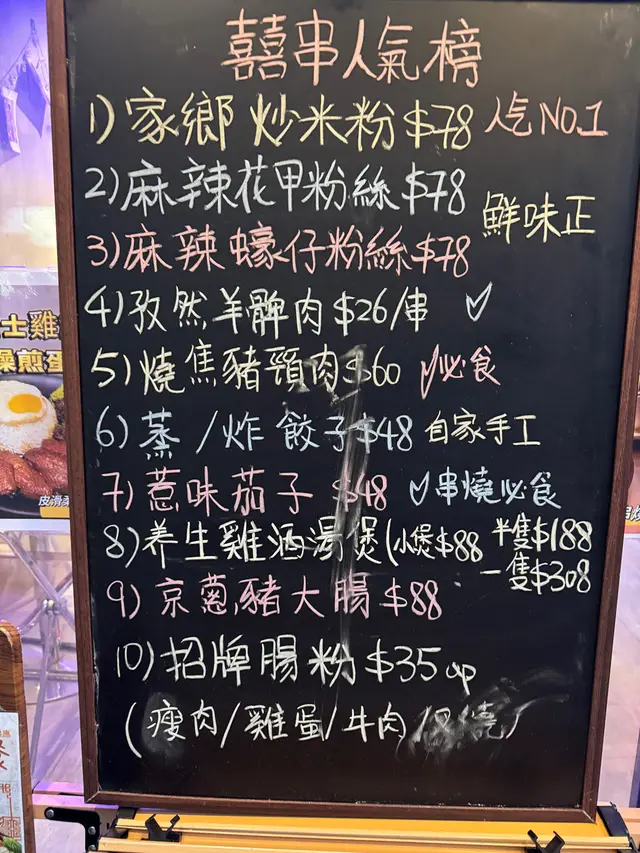 囍串人氣榜
1) 家鄉炒米粉 $78 人气 NO.1
2) 麻辣花甲粉絲 $78
鮮味正
3) 麻辣蠔仔粉絲 $78
4) 孜然羊髀肉 $26/串 ✓
5) 燒焦豬頸肉 $60 必食
6) 蒸/炸餃子 $48 自家手工
7) 惹味茄子 $48 串燒必食
8) 养生雞酒湯煲(小煲$88 半隻$188
一隻$308
9) 京蔥豬大腸 $88
10) 招牌腸粉 $35up
(瘦肉/雞蛋/牛肉/